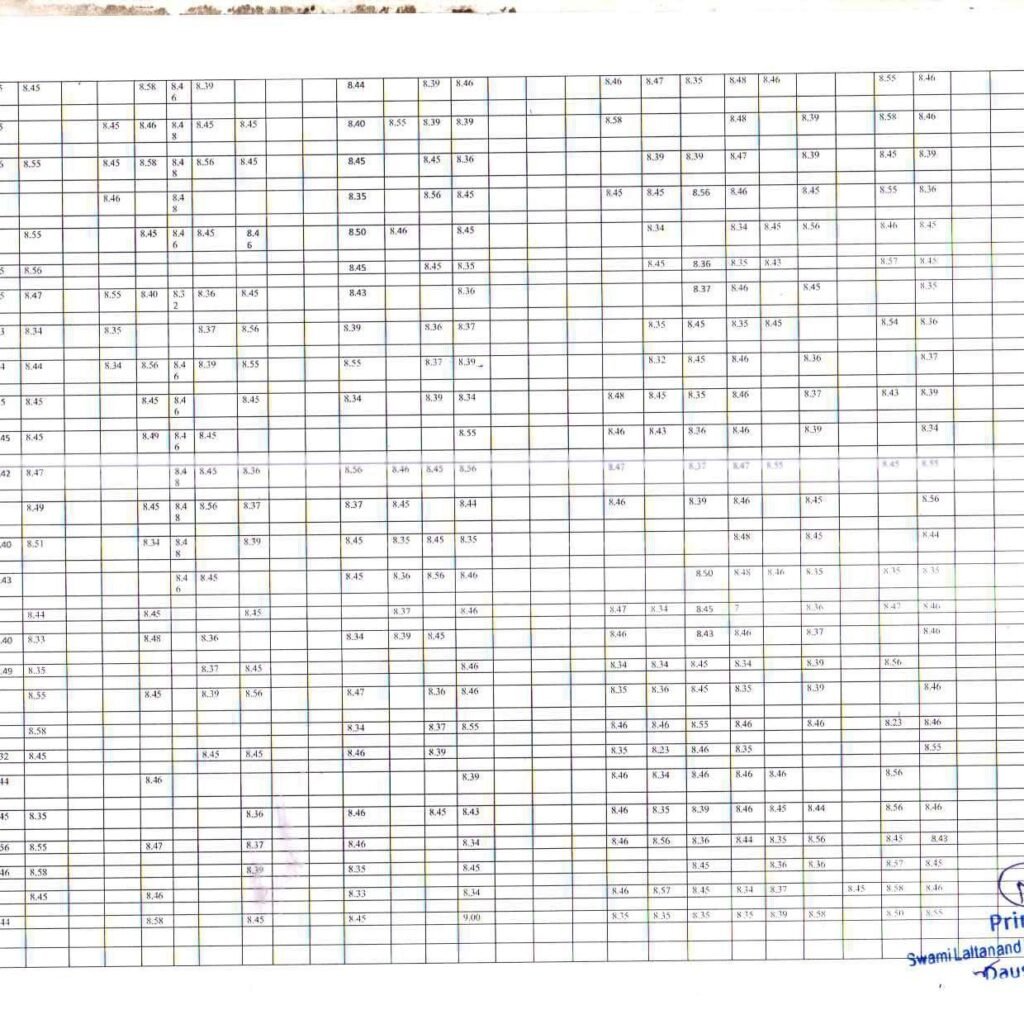 8.45 8.58 8.4 8.39 8.44 8.39 8.46 8.46 8.47 8.35 8.48 8.46 8.55 8.46
6
8.45 8.46 8.4 8.45 8.45 8.40 8.55 8.39 8.39 8.58 8.48 8.39 8.58 8.46
8
8.55 8.45 8.58 8.4 8.56 8.45 8.45 8.45 8.36 8.39 8.39 8.47 8.39 8.45 8.39
8
8.46 8.4 8.35 8.56 8.45 8.45 8.45 8.56 8.46 8.45 8.55 8.36
8
8.55 8.45 8.4 8.45 8.4 8.50 8.46 8.45 8.34 8.34 8.45 8.56 8.46 8.45
6 6
8.56 8.45 8.45 8.35 8.45 8.36 8.35 8.43 8.57 8.45
8.47 8.55 8.40 8.3 8.36 8.45 8.43 8.36 8.37 8.46 8.45 8.35
2
8.34 8.35 8.37 8.56 8.39 8.36 8.37 8.35 8.45 8.35 8.45 8.54 8.36
8.44 8.34 8.56 8.4 8.39 8.55 8.55 8.37 8.39 8.32 8.45 8.46 8.36 8.37
6
8.45 8.45 8.4 8.45 8.34 8.39 8.34 8.48 8.45 8.35 8.46 8.37 8.43 8.39
6
45 8.45 8.49 8.4 8.45 8.55 8.46 8.43 8.36 8.46 8.39 8.34
6
42 8.47 8.4 8.45 8.36 8.56 8.46 8.45 8.56 8.47 8.37 8.47 8.55 8.45 8.55
8
8.49 8.45 8.4 8.56 8.37 8.37 8.45 8.44 8.46 8.39 8.46 8.45 8.56
8
.40 8.51 8.34 8.4 8.39 8.45 8.35 8.45 8.35 8.48 8.45 8.44
8
.43 8.4 8.45 8.45 8.36 8.56 8.46 8.50 8.48 8.46 8.35 8.35 8.35
6
8.44 8.45 8.45 8.37 8.46 8.47 8.34 8.45 7 8.36 8.47 8.46
.40 8.33 8.48 8.36 8.34 8.39 8.45 8.46 8.43 8.46 8.37 8.46
.49 8.35 8.37 8.45 8.46 8.34 8.34 8.45 8.34 8.39 8.56
8.55 8.45 8.39 8.56 8.47 8.36 8.46 8.35 8.36 8.45 8.35 8.39 8.46
8.58 8.34 8.37 8.55 8.46 8.46 8.55 8.46 8.46 8.23 8.46
32 8.45 8.45 8.45 8.46 8.39 8.35 8.23 8.46 8.35 8.55
44 8.46 8.39 8.46 8.34 8.46 8.46 8.46 8.56
45 8.35 8.36 8.46 8.45 8.43 8.46 8.35 8.39 8.46 8.45 8.44 8.56 8.46
56 8.55 8.47 8.37 8.46 8.34 8.46 8.56 8.36 8.44 8.35 8.56 8.45 8.43
46 8.58 8.39 8.35 8.45 8.45 8.36 8.36 8.57 8.45
8.45 8.46 8.33 8.34 8.46 8.57 8.45 8.34 8.37 8.45 8.58 8.46
44 8.58 8.45 8.45 9.00 8.35 8.35 8.35 8.35 8.39 8.58 8.50 8.55
Pri
Swami Laltanand